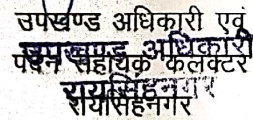 उपखण्ड अधिकारी एवं
उपखण्ड अधिकारी
पदेन सहायक कलक्टर
रायसिंहनगर
रायसिंहनगर